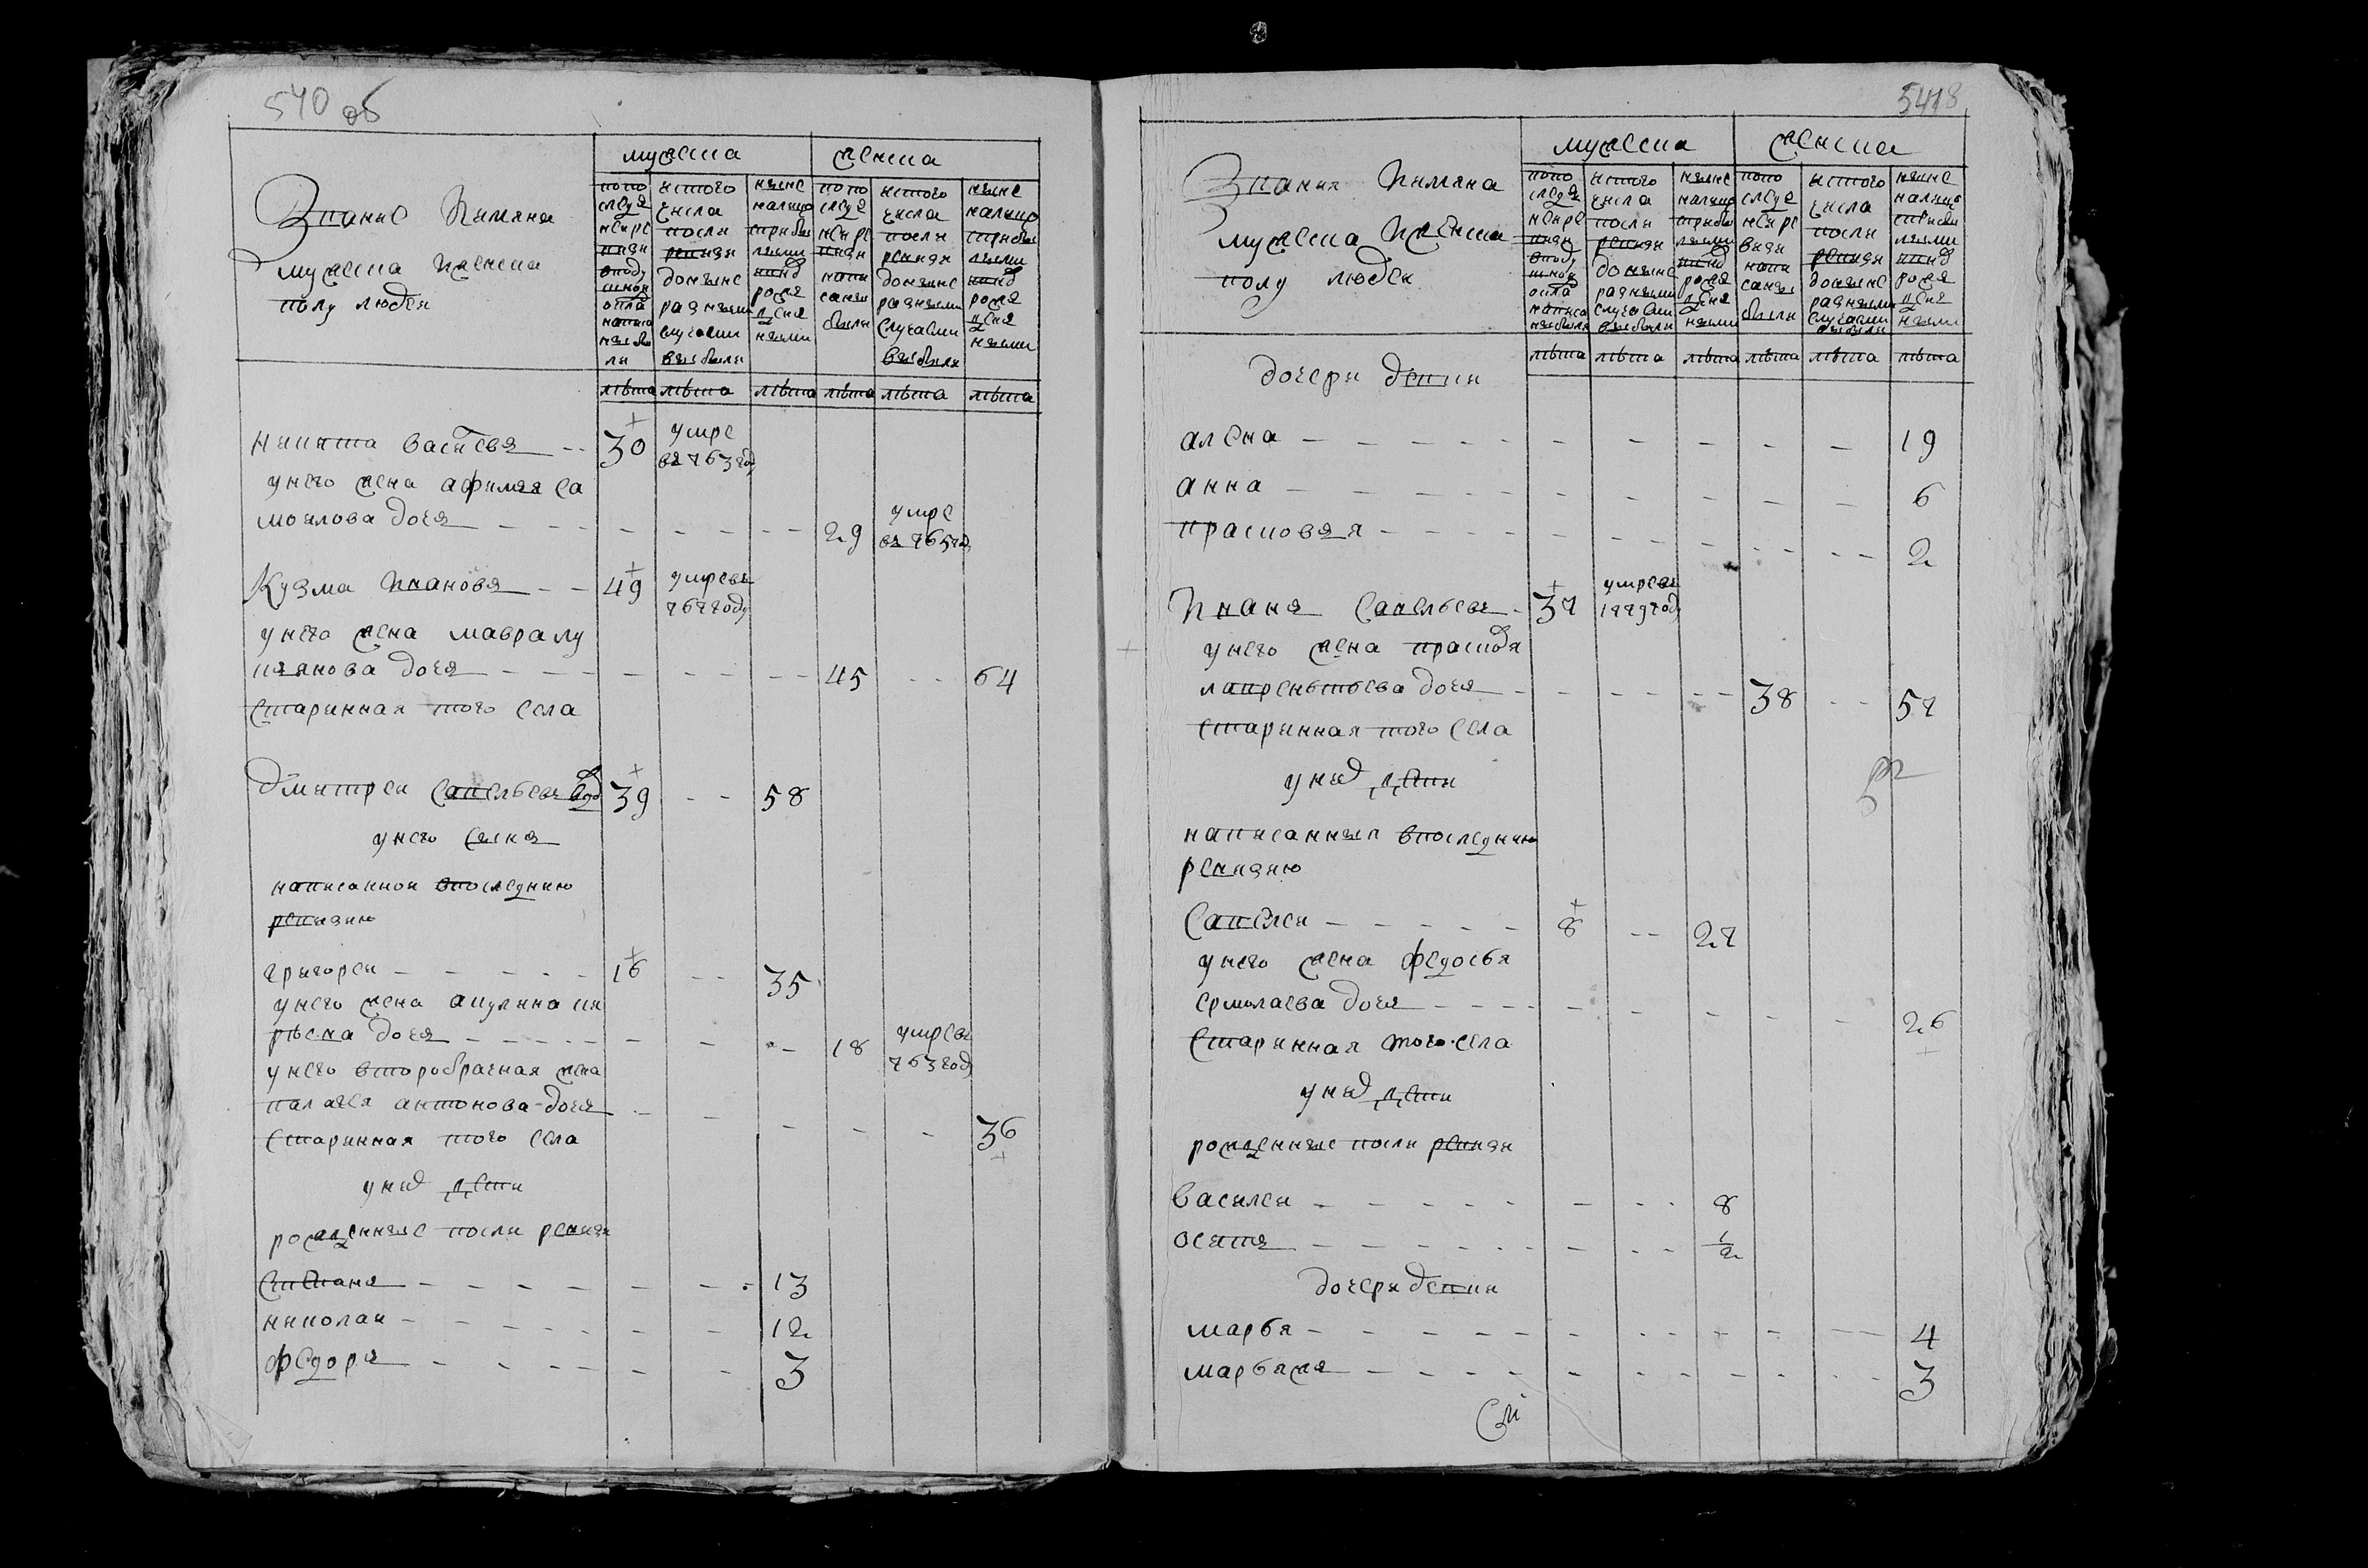 540 об
Звание і имяна
мужеска и женска
полу людеи
мужеска
женска
по по
следн
неи ре
визи
в поду
шнои
окла
написа
ны бы
ли
ис того
числа
после
ревизи
до ныне
разными
случаеми
выбыли
ныне
на лицо
с прибы
лыми
и внов
рожд
енъ
ными
по по
следн
неи ре
визи
напи
саны
были
ис того
числа
после
ревизи
до ныне
разными
случаеми
выбыли
ныне
на лицо
с прибы
лыми
и внов
рожд
енъ
ными
лѣта лѣта лѣта лѣта лѣта лѣта
никита васильевъ 30 умре
въ 763 году
у него жена афимья са
моилова дочь 29 умре
въ 765 году
Кузма ивановъ 49 умре въ
767 году
у него жена мавра лу
кьянова дочь 45 64
старинная того села
дмитреи савельевъ вдов 39 58
у него сынъ
написаннои в последнюю
ревизию
григореи 16 35
у него жена акулина ки
рѣева дочь 18 умре въ
763 году
у него второбрачная жена
палагея антонова дочь 36
старинная того села
у них дети
рожденные после ревизи
степанъ 13
николаи 12
федоръ 3
5418
Звания и имяна
мужеска и женска
полу людеи
мужеска
женска
по по
следн
неи ре
визи
в поду
шнои
окла
написа
ны были
ис того
числа
после
ревизи
до ныне
разными
случаеми
выбыли
ныне
на лицо
с прибы
лыми
и внов
рожд
енъ
ными
по по
следн
неи ре
визи
напи
саны
были
ис того
числа
после
ревизи
до ныне
разными
случаеми
выбыли
ныне
на лицо
с прибы
лыми
и внов
рожд
енъ
ными
лѣта лѣта лѣта лѣта лѣта лѣта
дочери девки
алена 19
анна 6
прасковья 2
Иванъ савельевъ 37 умре въ
1779 году
у него жена прасковя
лаврентьева дочь 38 57
старинная того села
у них дети
написанныя в последнюю
ревизию
савелеи 8 27
у него жена федосья
ермолаева дочь 26
старинная того села
у них дети
рожденные после ревизи
василеи 8
осипъ 1/2
дочери девки
марфа 4
марфа ж 3